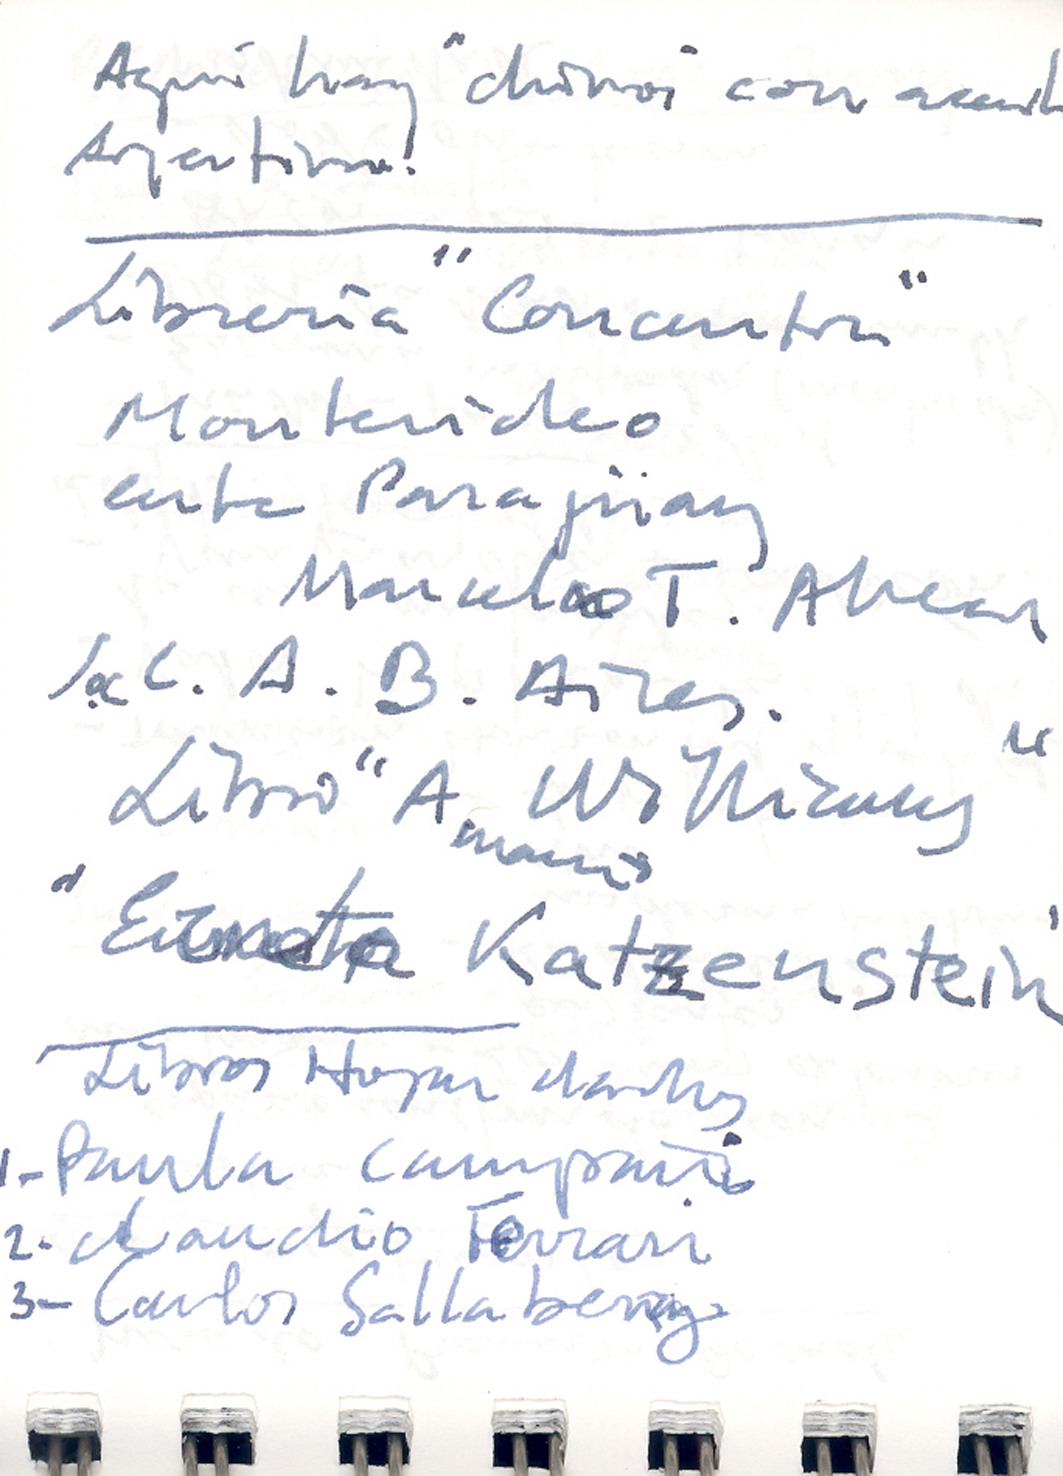 Aquí hay "chinos con acento
Argentino.
Librería "Concentra"
Montevideo
entre Paraguay
Marcelo T. Alvear
C. A. B. Aires.
Libro "A. Williams"
"Ernesto Katzenstein
Libros Hogar
1- Paula
2- Claudio Ferrari
3- Carlos Sallaberry